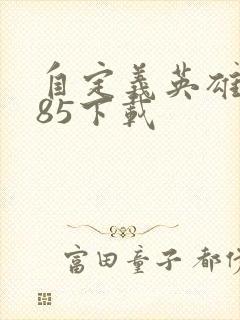 自定義英雄
85下載
富田童子 都伏